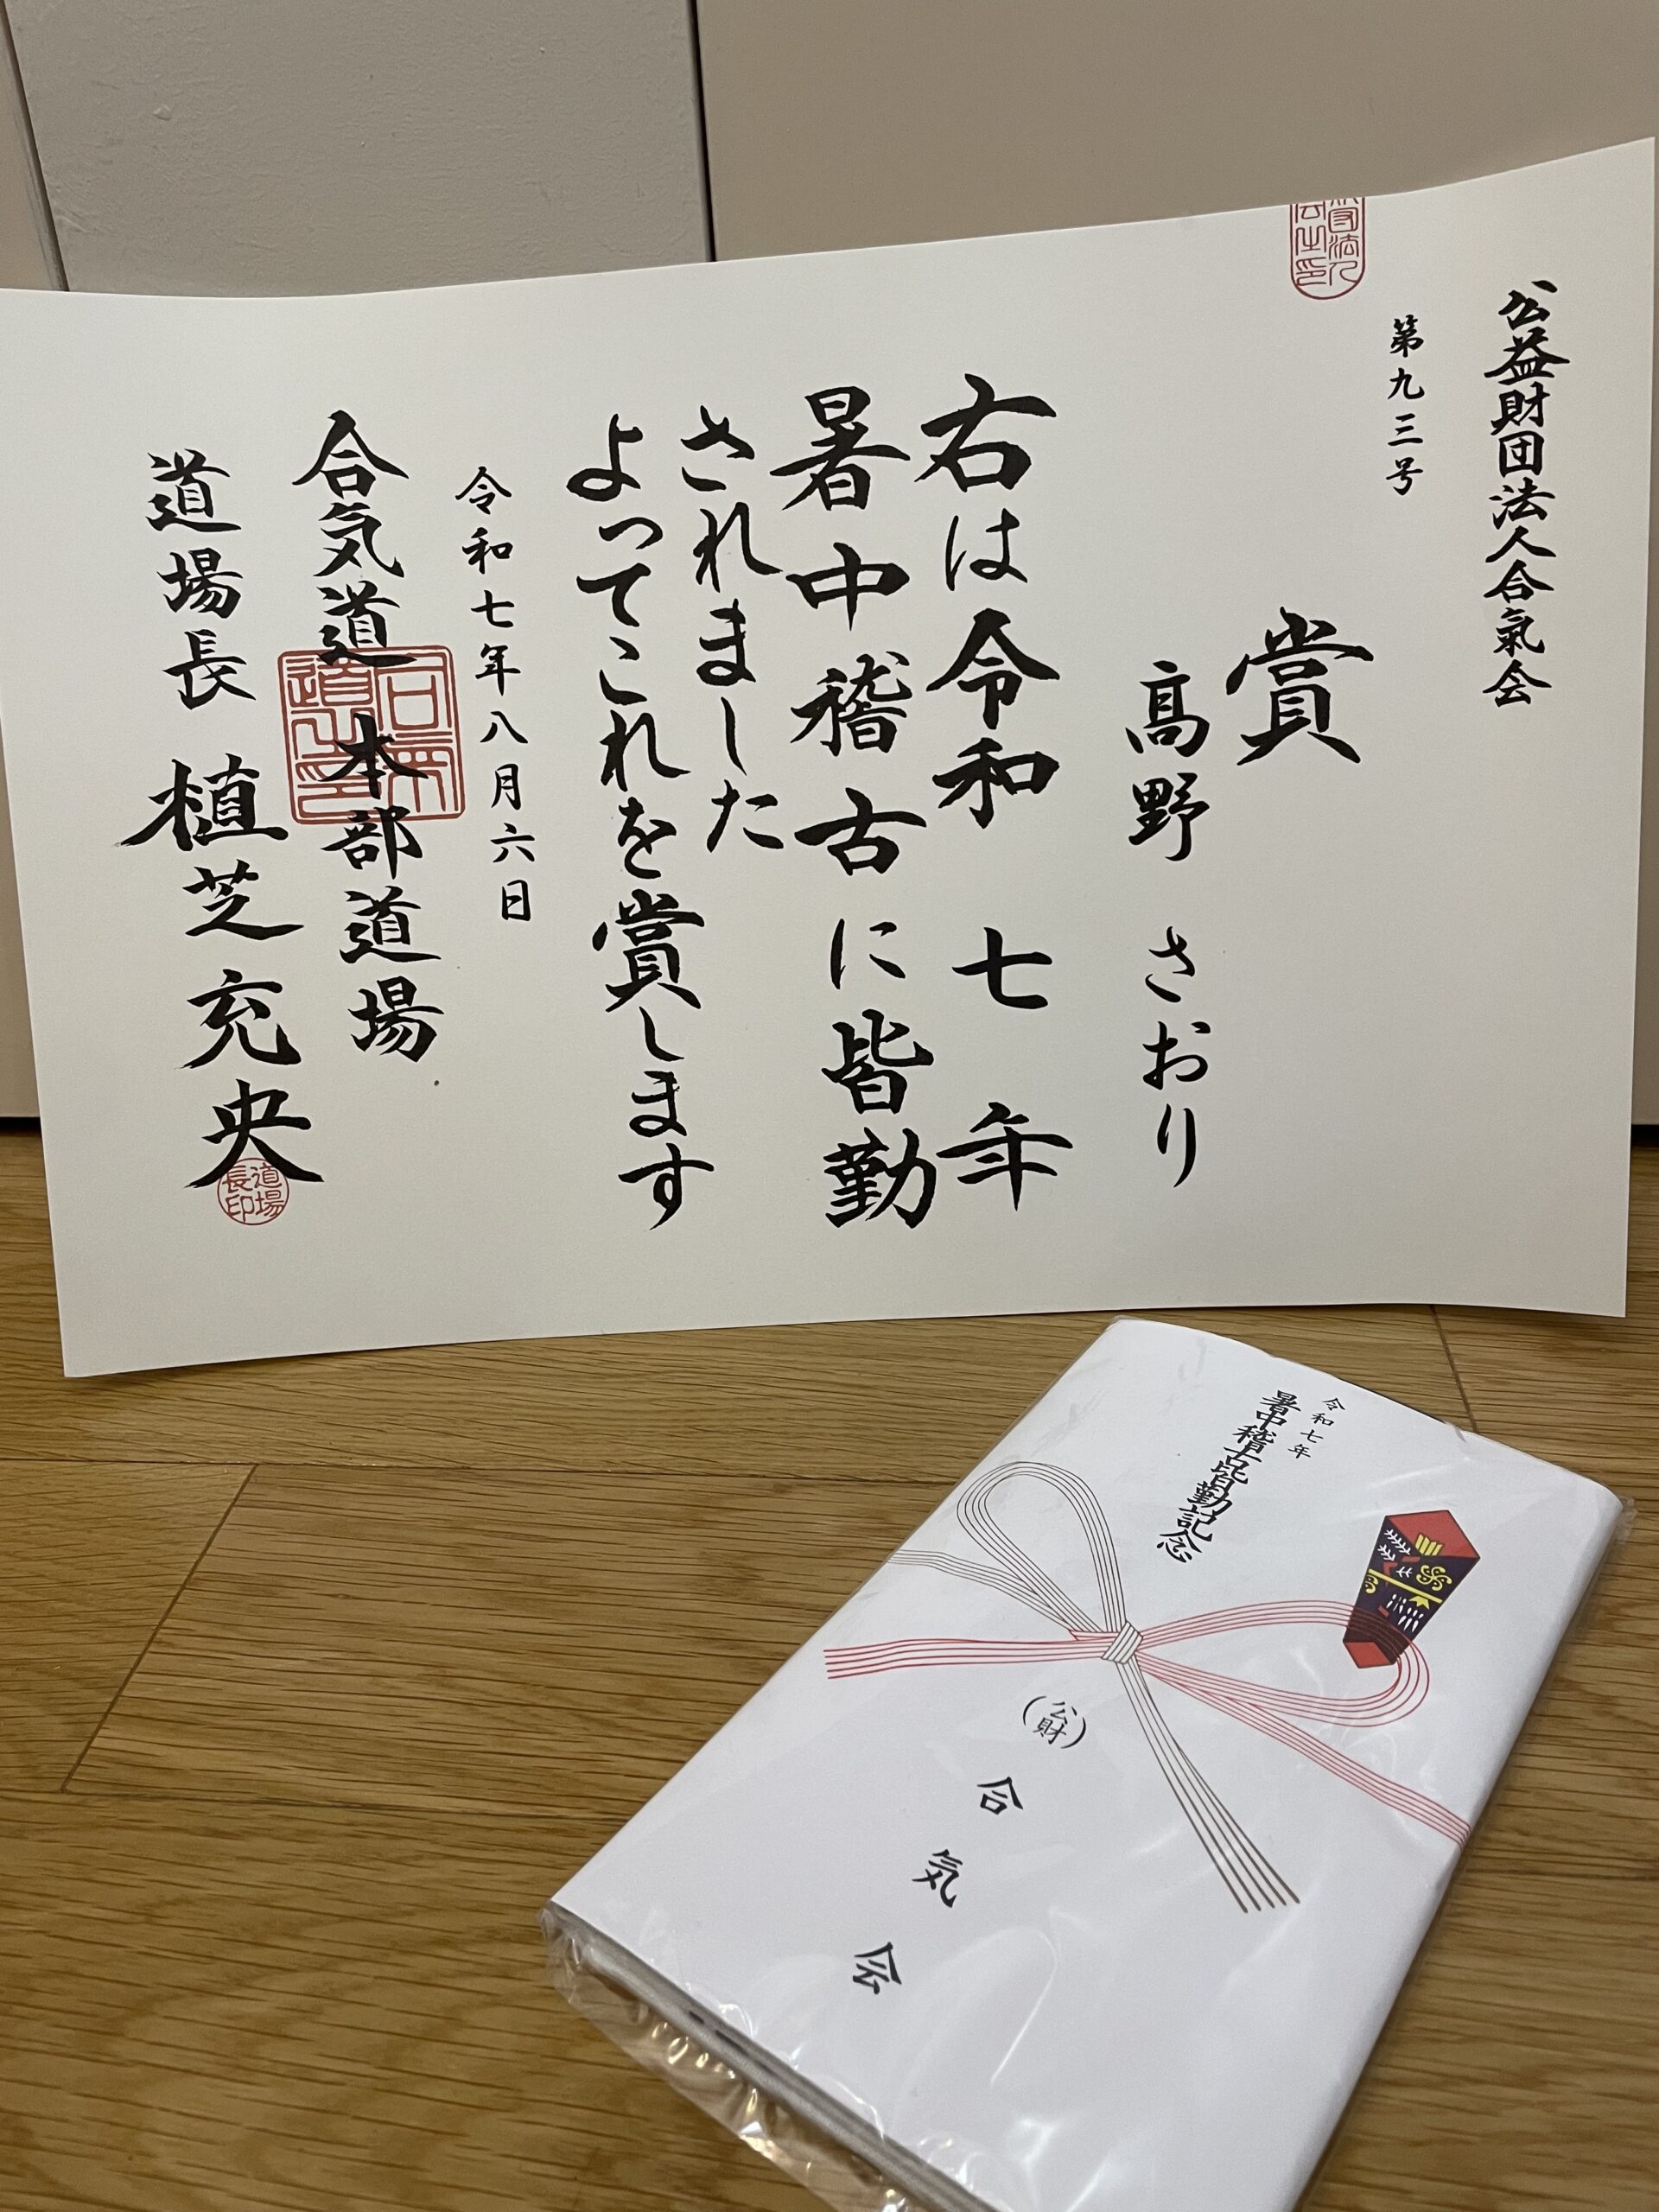 公益財団法人合氣会
第九三号
賞
髙野 さおり
右は令和七年
暑中稽古に皆勤
されました
よってこれを賞します
令和七年八月六日
合気道本部道場
道場長 植芝充央
道場
長印
令和七年
暑中稽古皆勤記念
(公財)
合気会